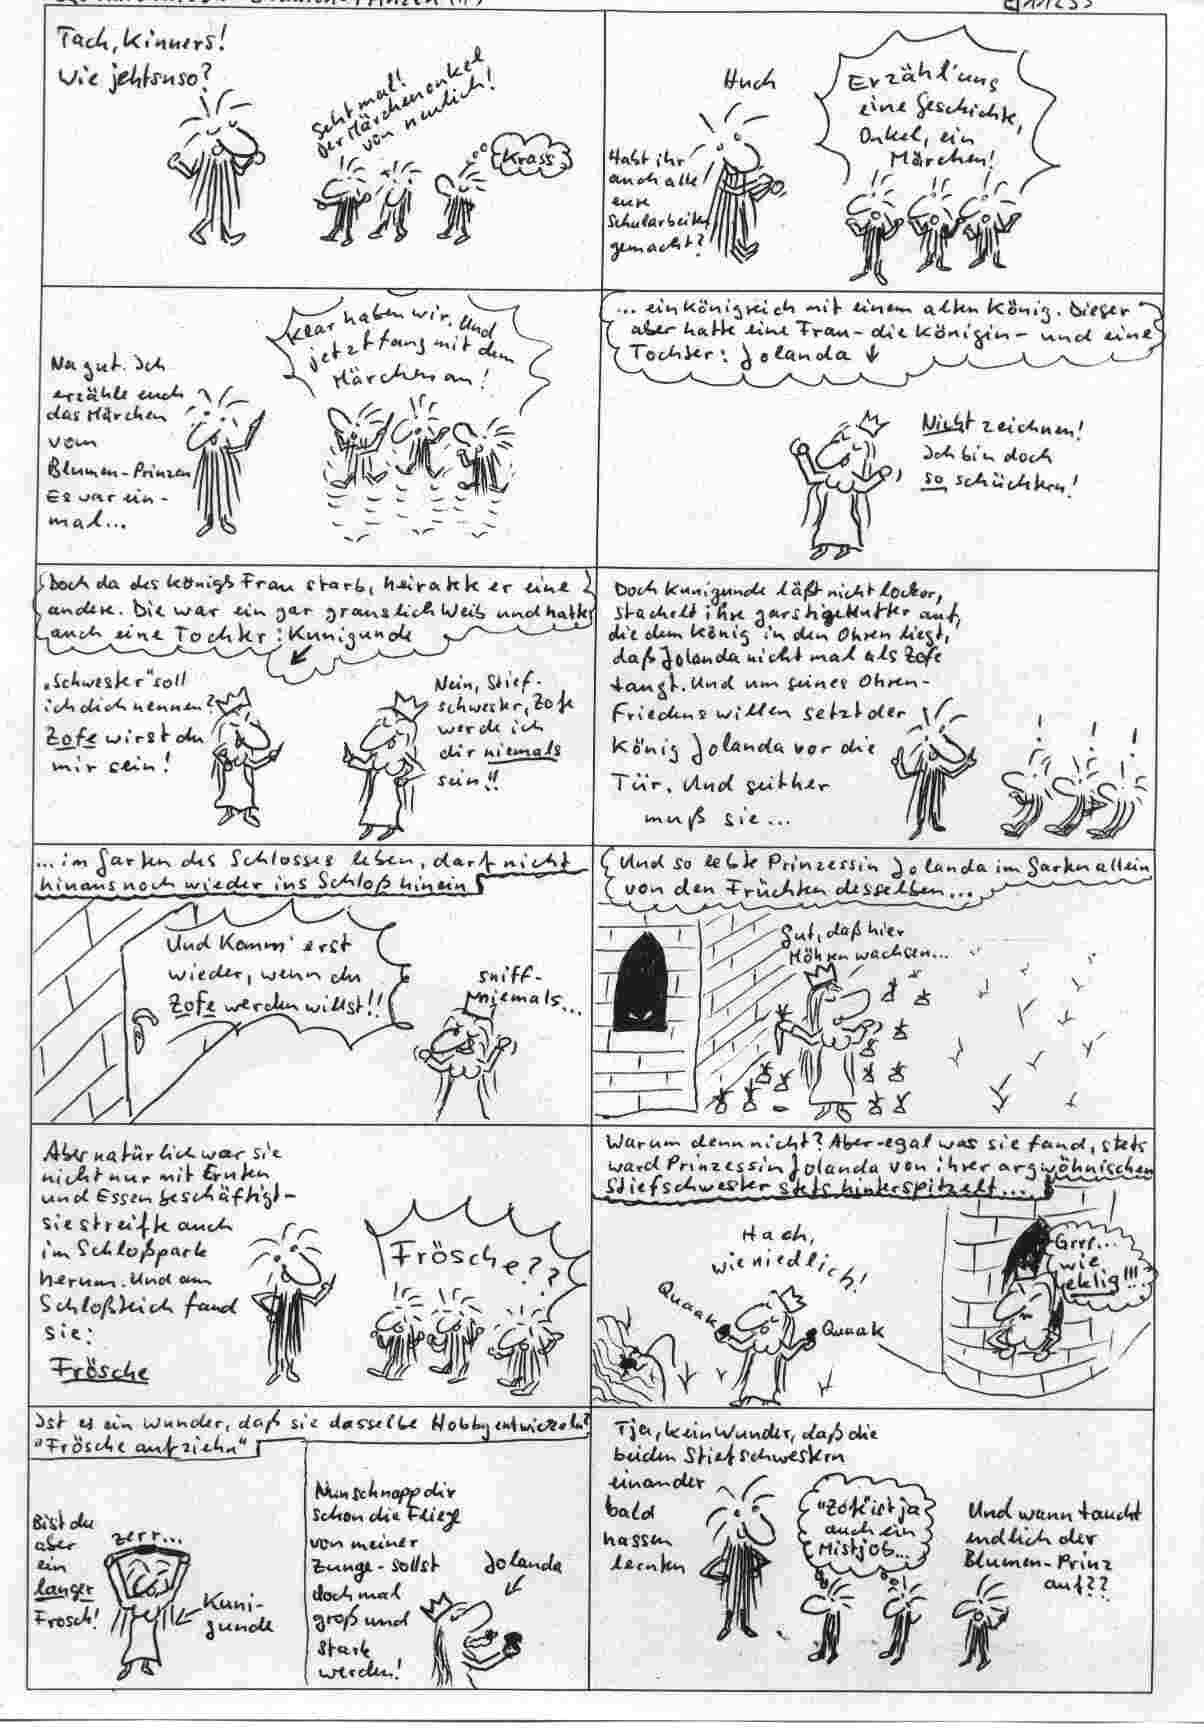 Tach, Kinners!
Wie jehtsnso?
Seht mal!
Der Märchenonkel
von neulich!
Krass
Huch
Habt ihr
auch alle
eure
Schularbeiten
gemacht?
Erzähl' uns
eine Geschichte,
Onkel, ein
Märchen!
Na gut. Ich
erzähle euch
das Märchen
vom
Blumen-Prinzen
Es war ein-
mal...
Klar haben wir. Und
jetzt fang mit dem
Märchen an!
... ein Königreich mit einem alten König. Dieser
aber hatte eine Frau - die Königin - und eine
Tochter: Jolanda
Nicht zeichnen!
Ich bin doch
so schüchtern!
Doch da des Königs Frau starb, heiratete er eine
andere. Die war ein gar grauslich Weib und hatte
auch eine Tochter: Kunigunde
"Schwester" soll
ich dich nennen?
Zofe wirst du
mir sein!
Nein, Stief-
schwester, Zofe
werde ich
dir niemals
sein!!
Doch Kunigunde läßt nicht locker,
stachelt ihre garstige Mutter auf,
die dem König in den Ohren liegt,
daß Jolanda nicht mal als Zofe
taugt. Und um seines Ohren-
Friedens willen setzt der
König Jolanda vor die
Tür. Und seither
muß sie...
! ! !
... im Garten des Schlosses leben, darf nicht
hinaus noch wieder ins Schloß hinein
Und komm' erst
wieder, wenn du
Zofe werden willst!!
sniff-
niemals...
Und so lebte Prinzessin Jolanda im Garten allein
von den Früchten desselben...
Gut, daß hier
Möhren wachsen...
Aber natürlich war sie
nicht nur mit Ernten
und Essen beschäftigt-
sie streifte auch
im Schloßpark
herum. Und am
Schloßteich fand
sie:
Frösche
Frösche??
Warum denn nicht? Aber-egal was sie fand, stets
ward Prinzessin Jolanda von ihrer argwöhnischen
Stiefschwester stets hinterspitzelt....
Hach,
wie niedlich!
Quaak
Quaak
Grrr...
wie
eklig!!!
Ist es ein Wunder, daß sie dasselbe Hobby entwickeln?
"Frösche aufziehn"
Bist du
aber
ein
langer
Frosch!
zerr...
Kuni-
gunde
Nun schnapp dir
schon die Fliege
von meiner
Zunge - sollst
doch mal
groß und
stark
werden!
Jolanda
Tja, kein Wunder, daß die
beiden Stiefschwestern
einander
bald
hassen
lernten
"Zofe" ist ja
auch ein
Mistjob...
Und wann taucht
endlich der
Blumen-Prinz
auf??